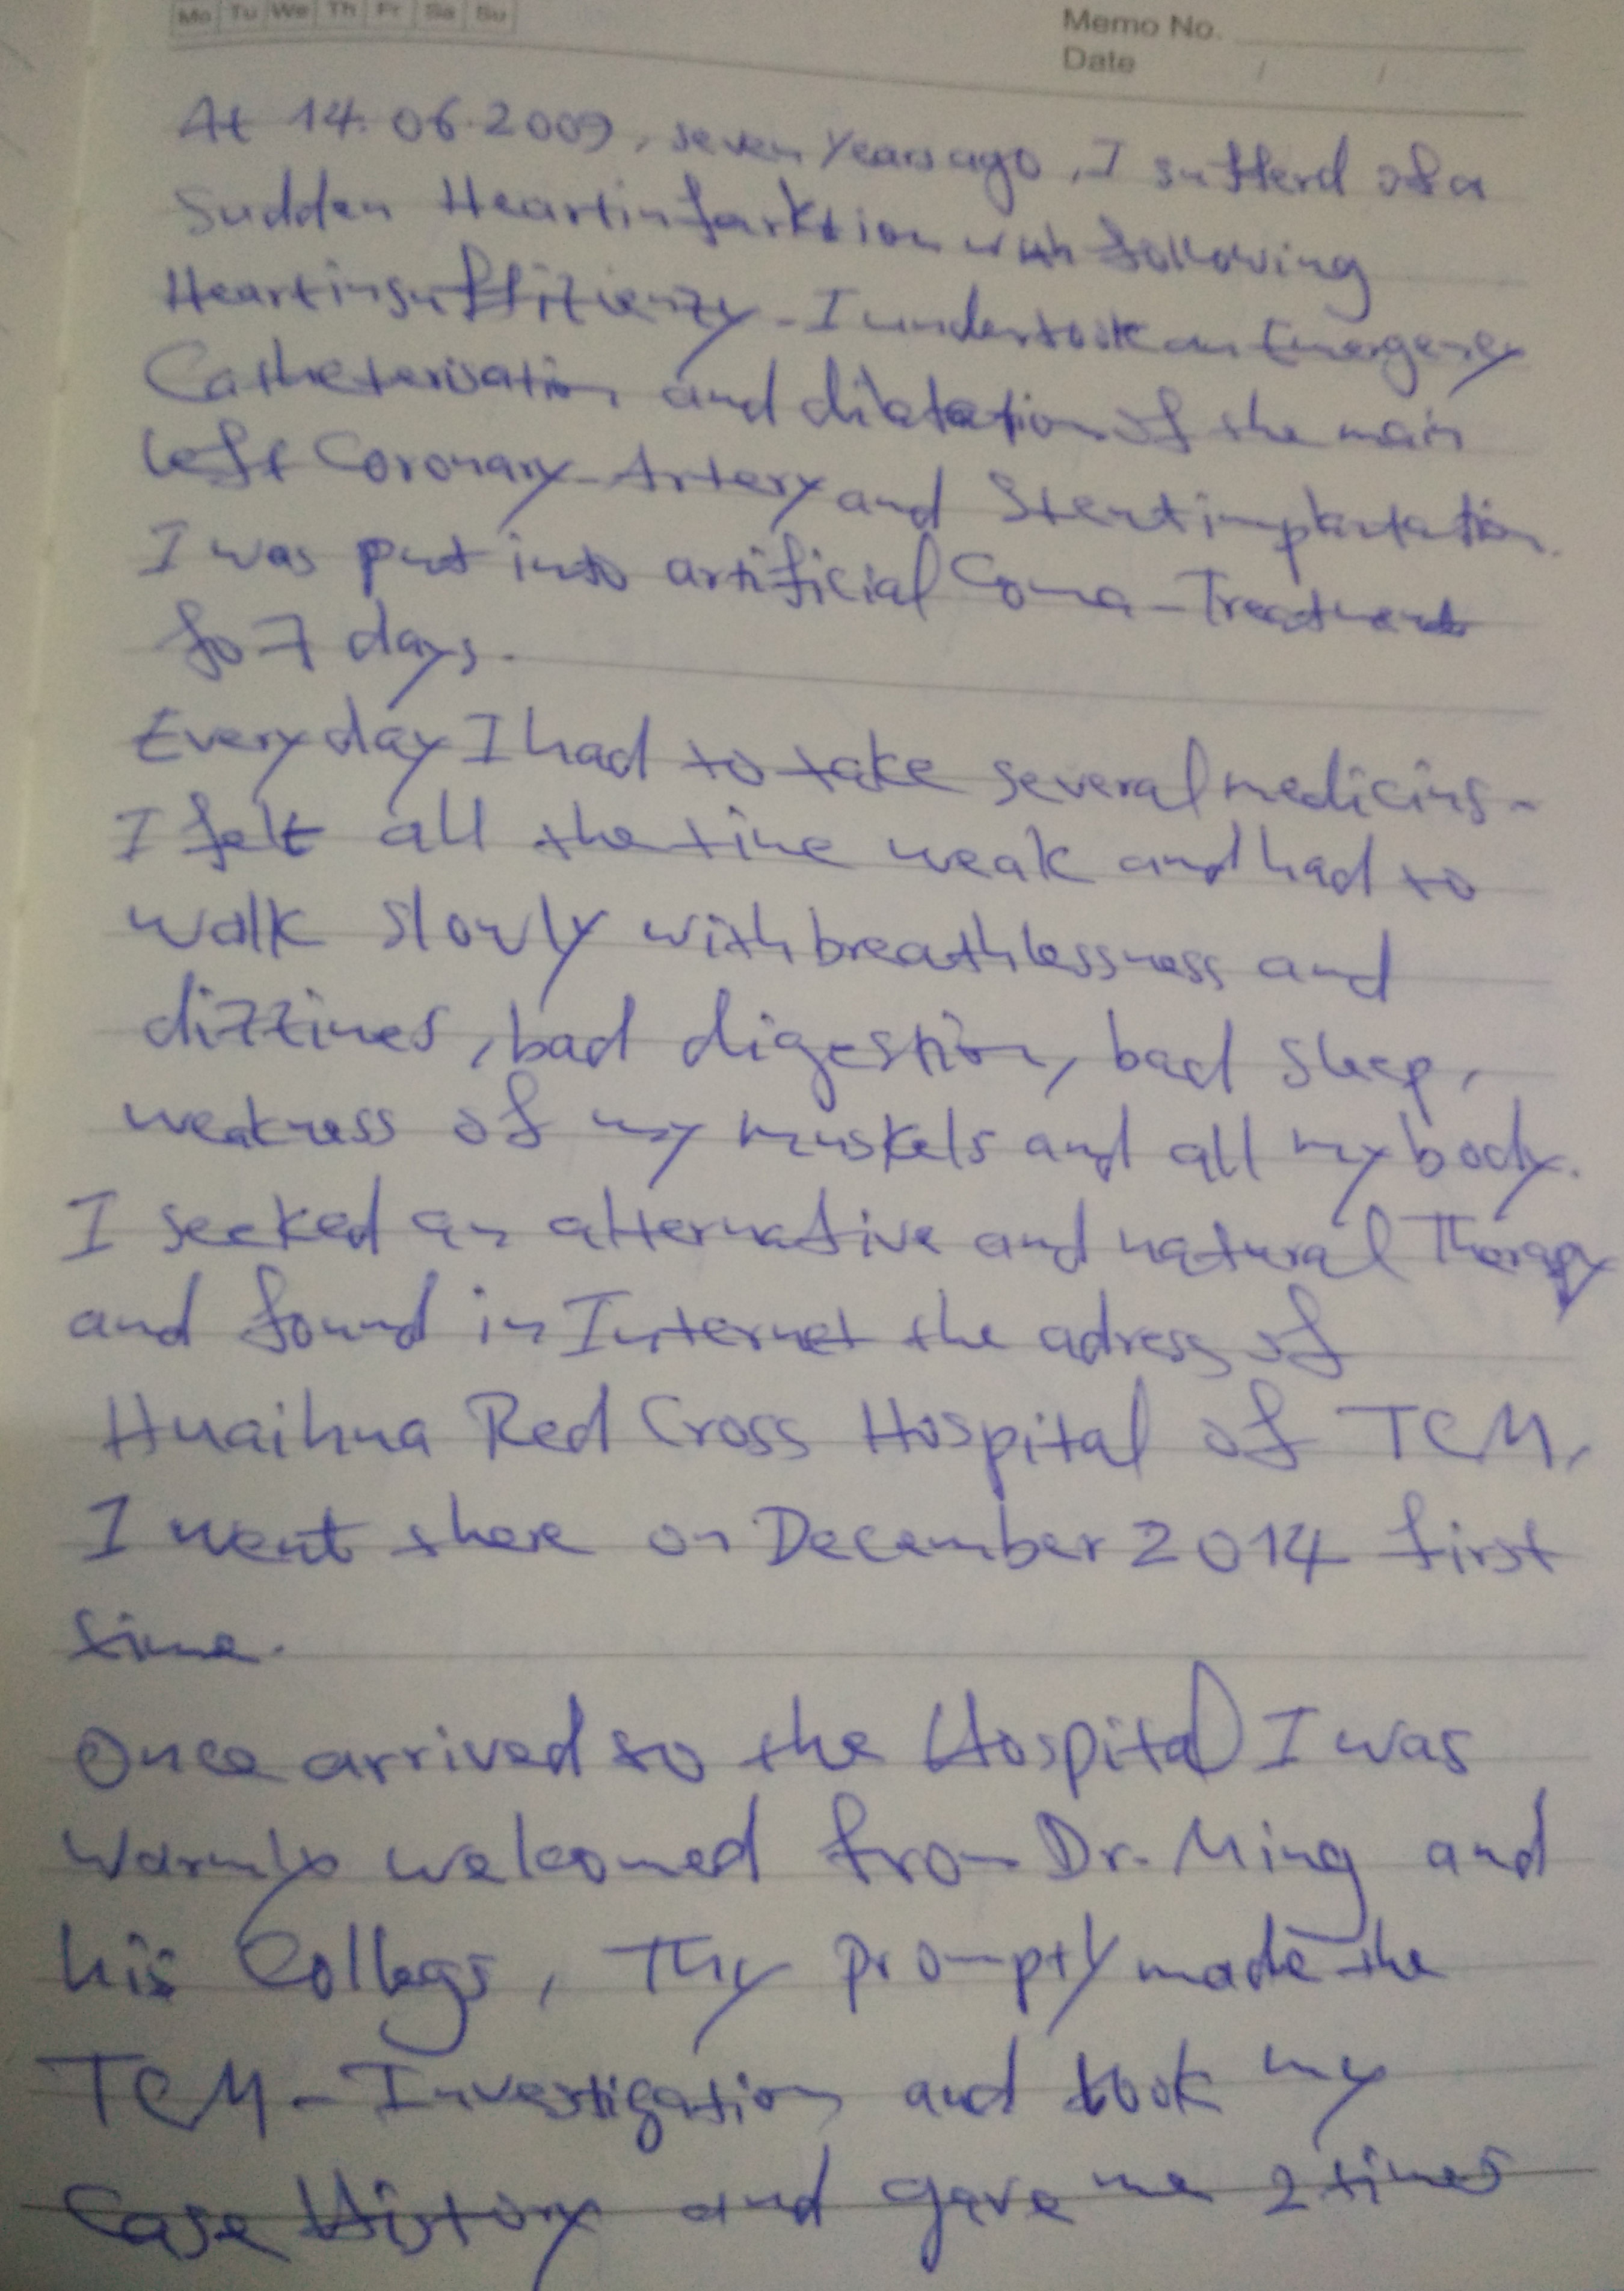 Mo Tu We Th Fr Sa Su
Memo No.
Date / /
At 14.06.2009, seven years ago, I sufferd of a
Sudden Heartinfarktion with following
Heartinsuffizienzy - I undertook an Emergency
Catheterisation and dilatation of the main
left Coronary-Artery and Stentimplantation.
I was put into artificial Coma-Treatment
fo 7 days.
Every day I had to take several medicins -
I felt all the time weak and had to
walk slowly with breathlessness and
dizzines, bad digestion, bad sleep,
weakness of my muskels and all my body.
I seeked an alternative and natural Therapy
and found in Internet the adress of
Huaihua Red Cross Hospital of TCM,
I went there on December 2014 first
time.
Once arrived to the Hospital I was
Warmly welcomed from Dr. Ming and
his Collegs, Thy promptly made the
TCM - Investigation and took my
Case History and gave me 2 times